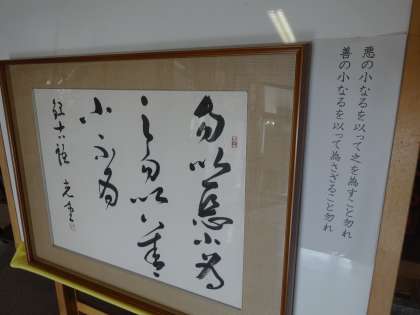 悪の小なるを以って之を為すこと勿れ
善の小なるを以って為さざること勿れ
勿以悪小為
之勿以善
小不為